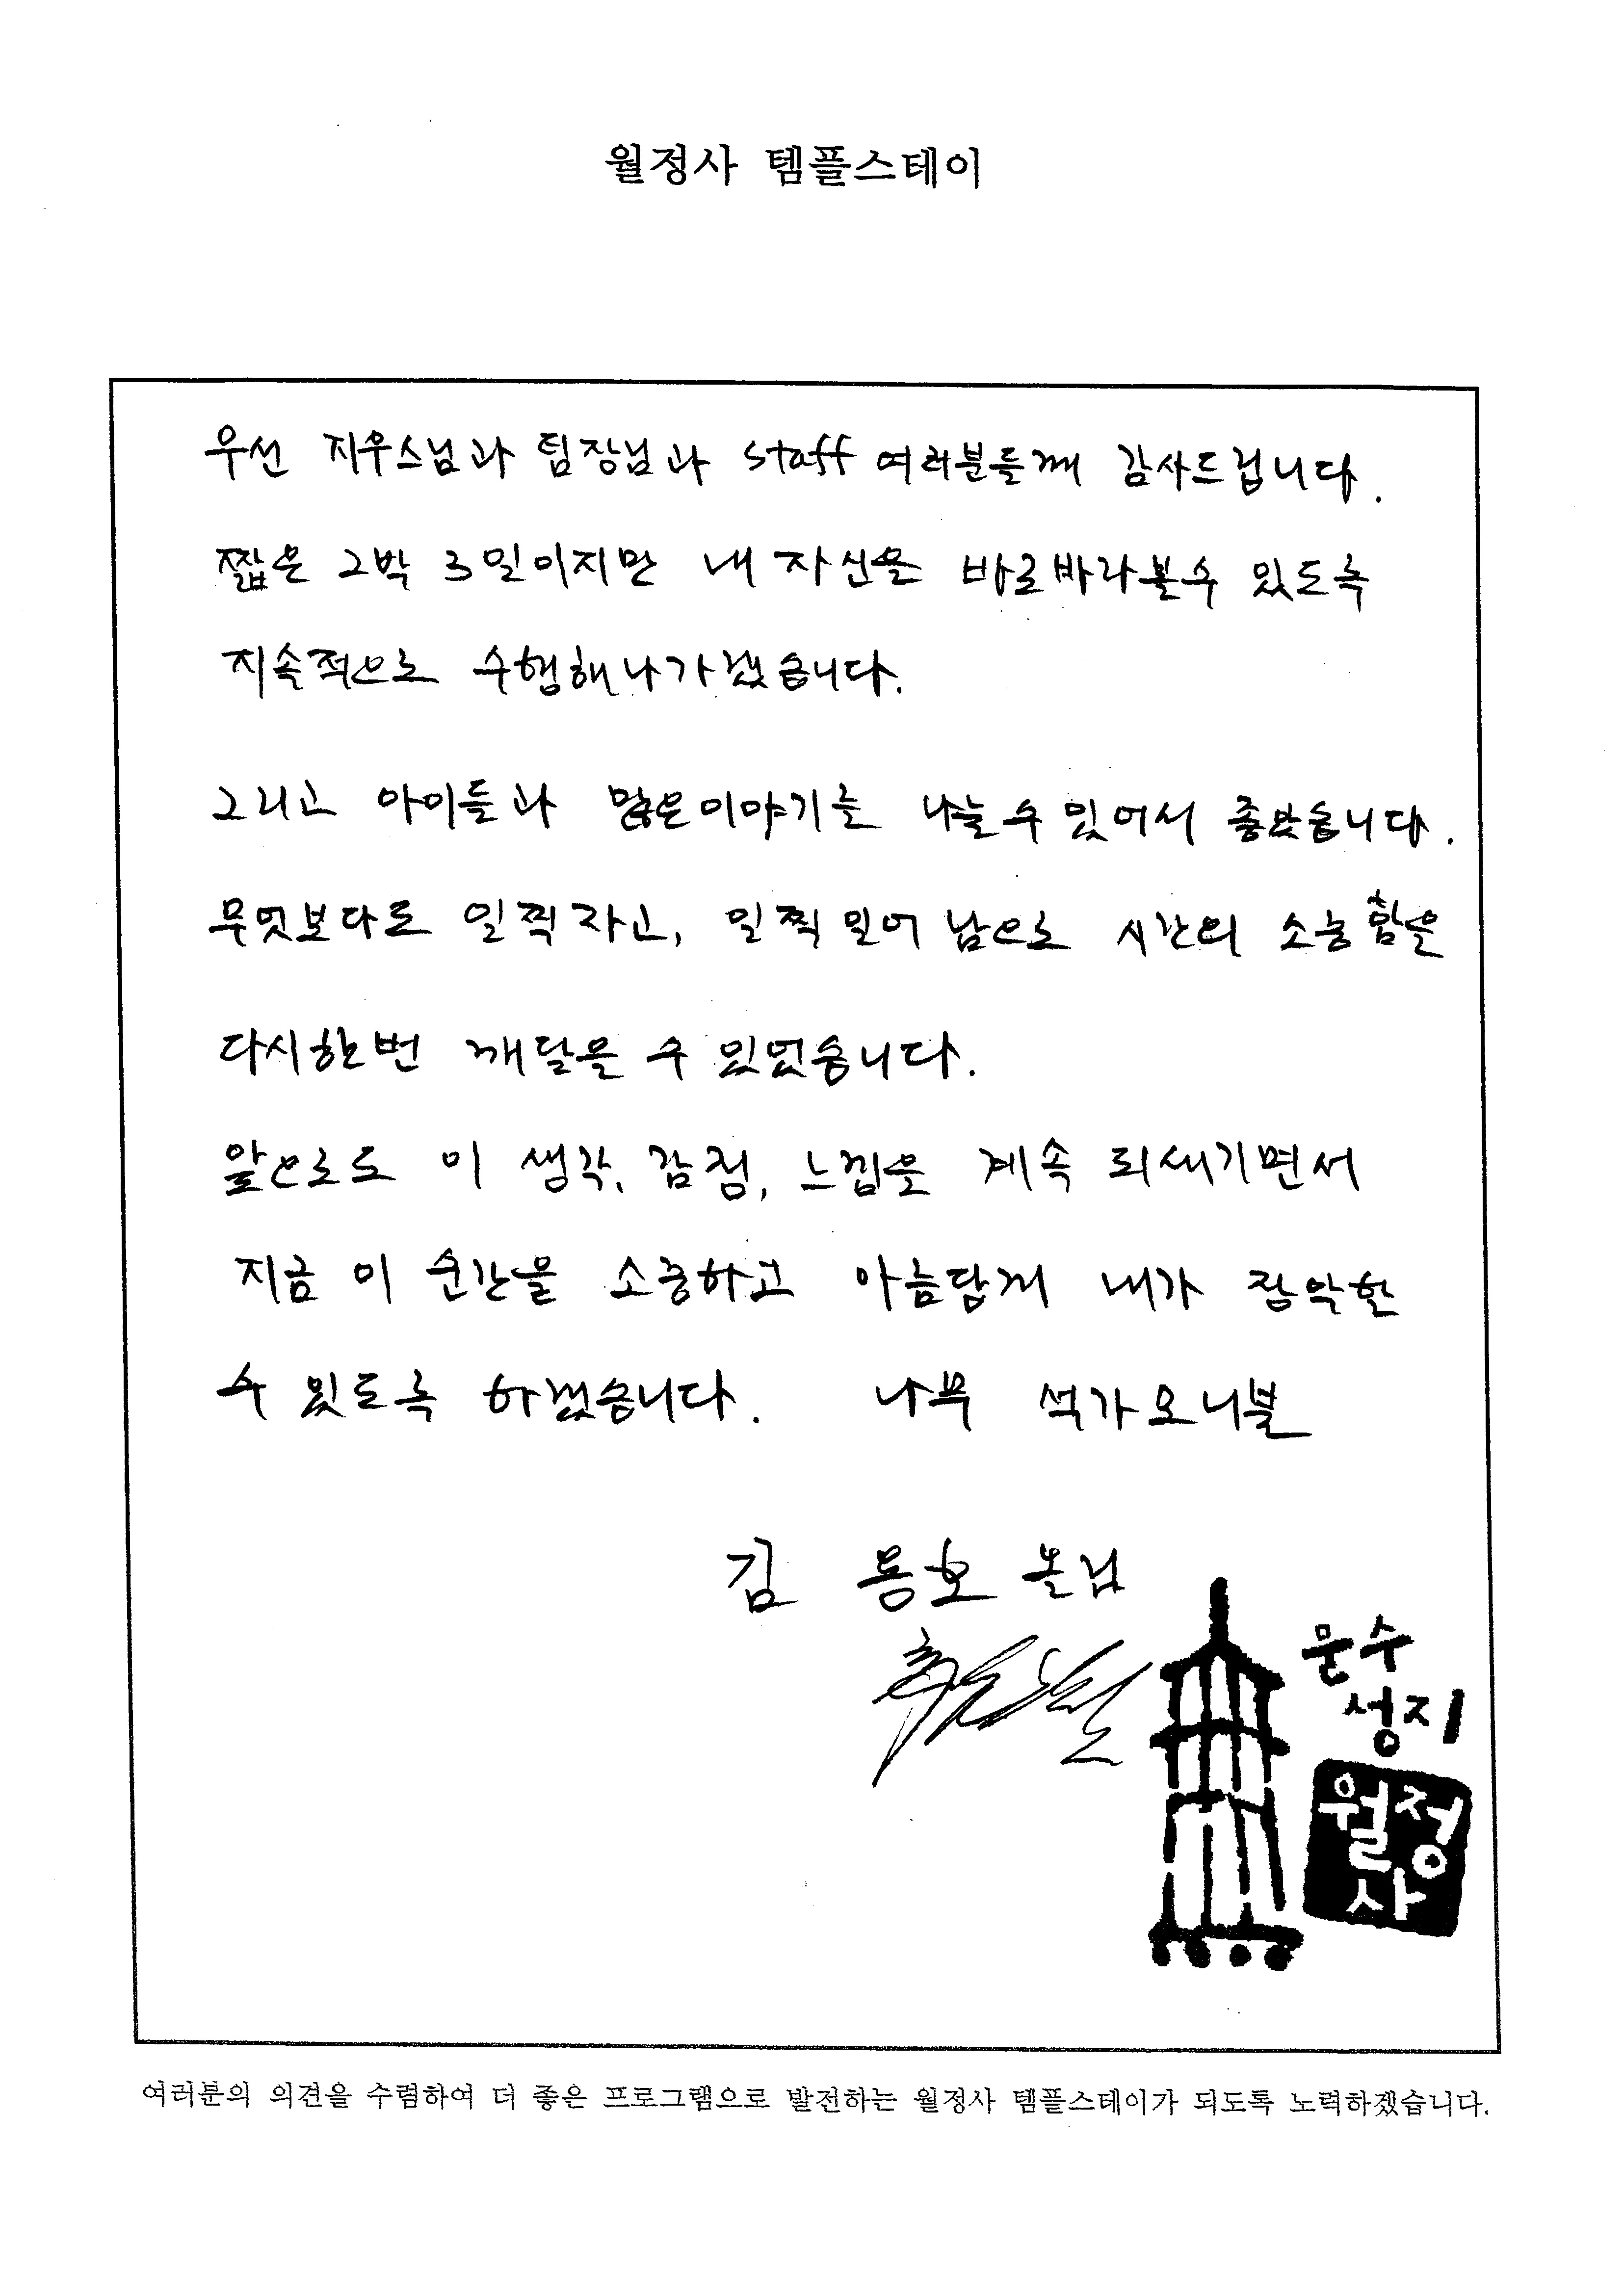 월정사 템플스테이
우선 지우스님과 팀장님과 staff 여러분들께 감사드립니다.
짧은 2박 3일이지만 내 자신을 바로바라볼수 있도록
지속적으로 수행해나가겠습니다.
그리고 아이들과 많은이야기를 나눌수있어서 좋았습니다.
무엇보다도 일찍자고, 일찍일어남으로 시간의 소중함을
다시한번 깨달을 수 있었습니다.
앞으로도 이 생각, 감정, 느낌을 계속 되새기면서
지금 이 순간을 소중하고 아름답게 내가 장악할
수 있도록 하겠습니다. 나무 석가모니불
김
문수
성지
월정
사
여러분의 의견을 수렴하여 더 좋은 프로그램으로 발전하는 월정사 템플스테이가 되도록 노력하겠습니다.